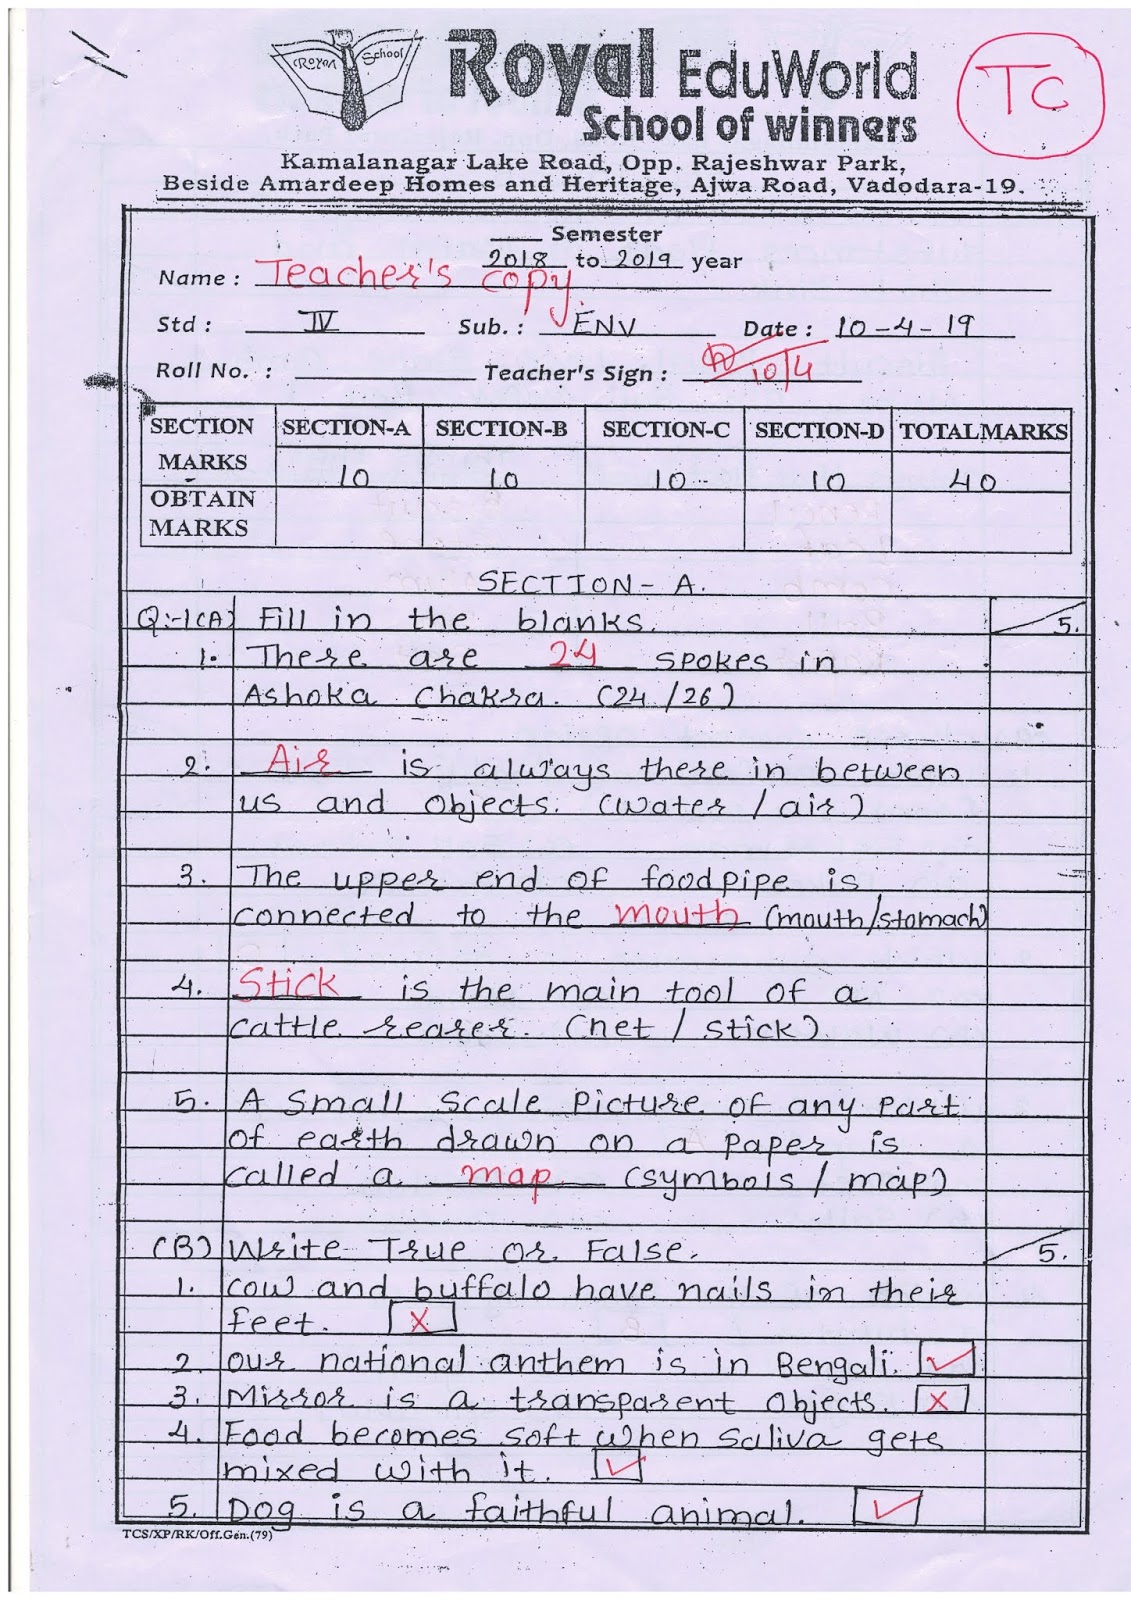 Royal School
Royal EduWorld
School of winners
TC
Kamalanagar Lake Road, Opp. Rajeshwar Park,
Beside Amardeep Homes and Heritage, Ajwa Road, Vadodara-19.
____ Semester
2018 to 2019 year
Name : Teacher's copy.
Std : IV Sub. : ENV Date : 10-4-19
Roll No. : Teacher's Sign : 10/4
SECTION MARKS SECTION-A SECTION-B SECTION-C SECTION-D TOTAL MARKS
10 10 10 10 40
OBTAIN MARKS
SECTION-A.
Q:-1(A) Fill in the blanks. 5.
1. There are 24 spokes in
Ashoka Chakra. (24/26)
2. Air is always there in between
us and objects. (water/air)
3. The upper end of foodpipe is
connected to the mouth (mouth/stomach)
4. Stick is the main tool of a
cattle rearer. (net/stick).
5. A small scale picture of any part
of earth drawn on a paper is
called a map (symbols/map)
(B) Write True or False. 5.
1. cow and buffalo have nails in their
feet. X
2. our national anthem is in Bengali. ✓
3. Mirror is a transparent objects. X
4. Food becomes soft when saliva gets
mixed with it. ✓
5. Dog is a faithful animal. ✓
TCS/XP/RK/Off.Gen.(79)